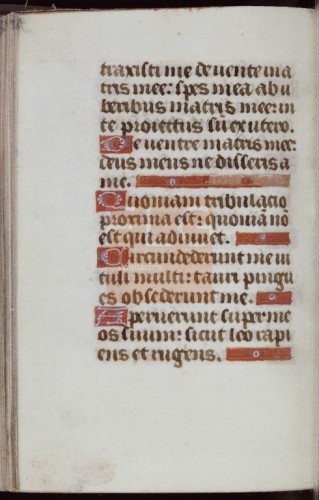 traxisti me de vente ma
tris mee: spes mea ab u
beribus matris mee: in
te proiectus su ex utero.
De ventre matris mee:
deus meus ne disseris a
me.
Quoniam tribulacio
proxima est: quoniā nō
est qui adiuvet.
Circundederunt me vi
tuli multi: tauri pingu
es obsederunt me.
Aperuerunt super me
os suum: sicut leo rapi
ens et rugens.